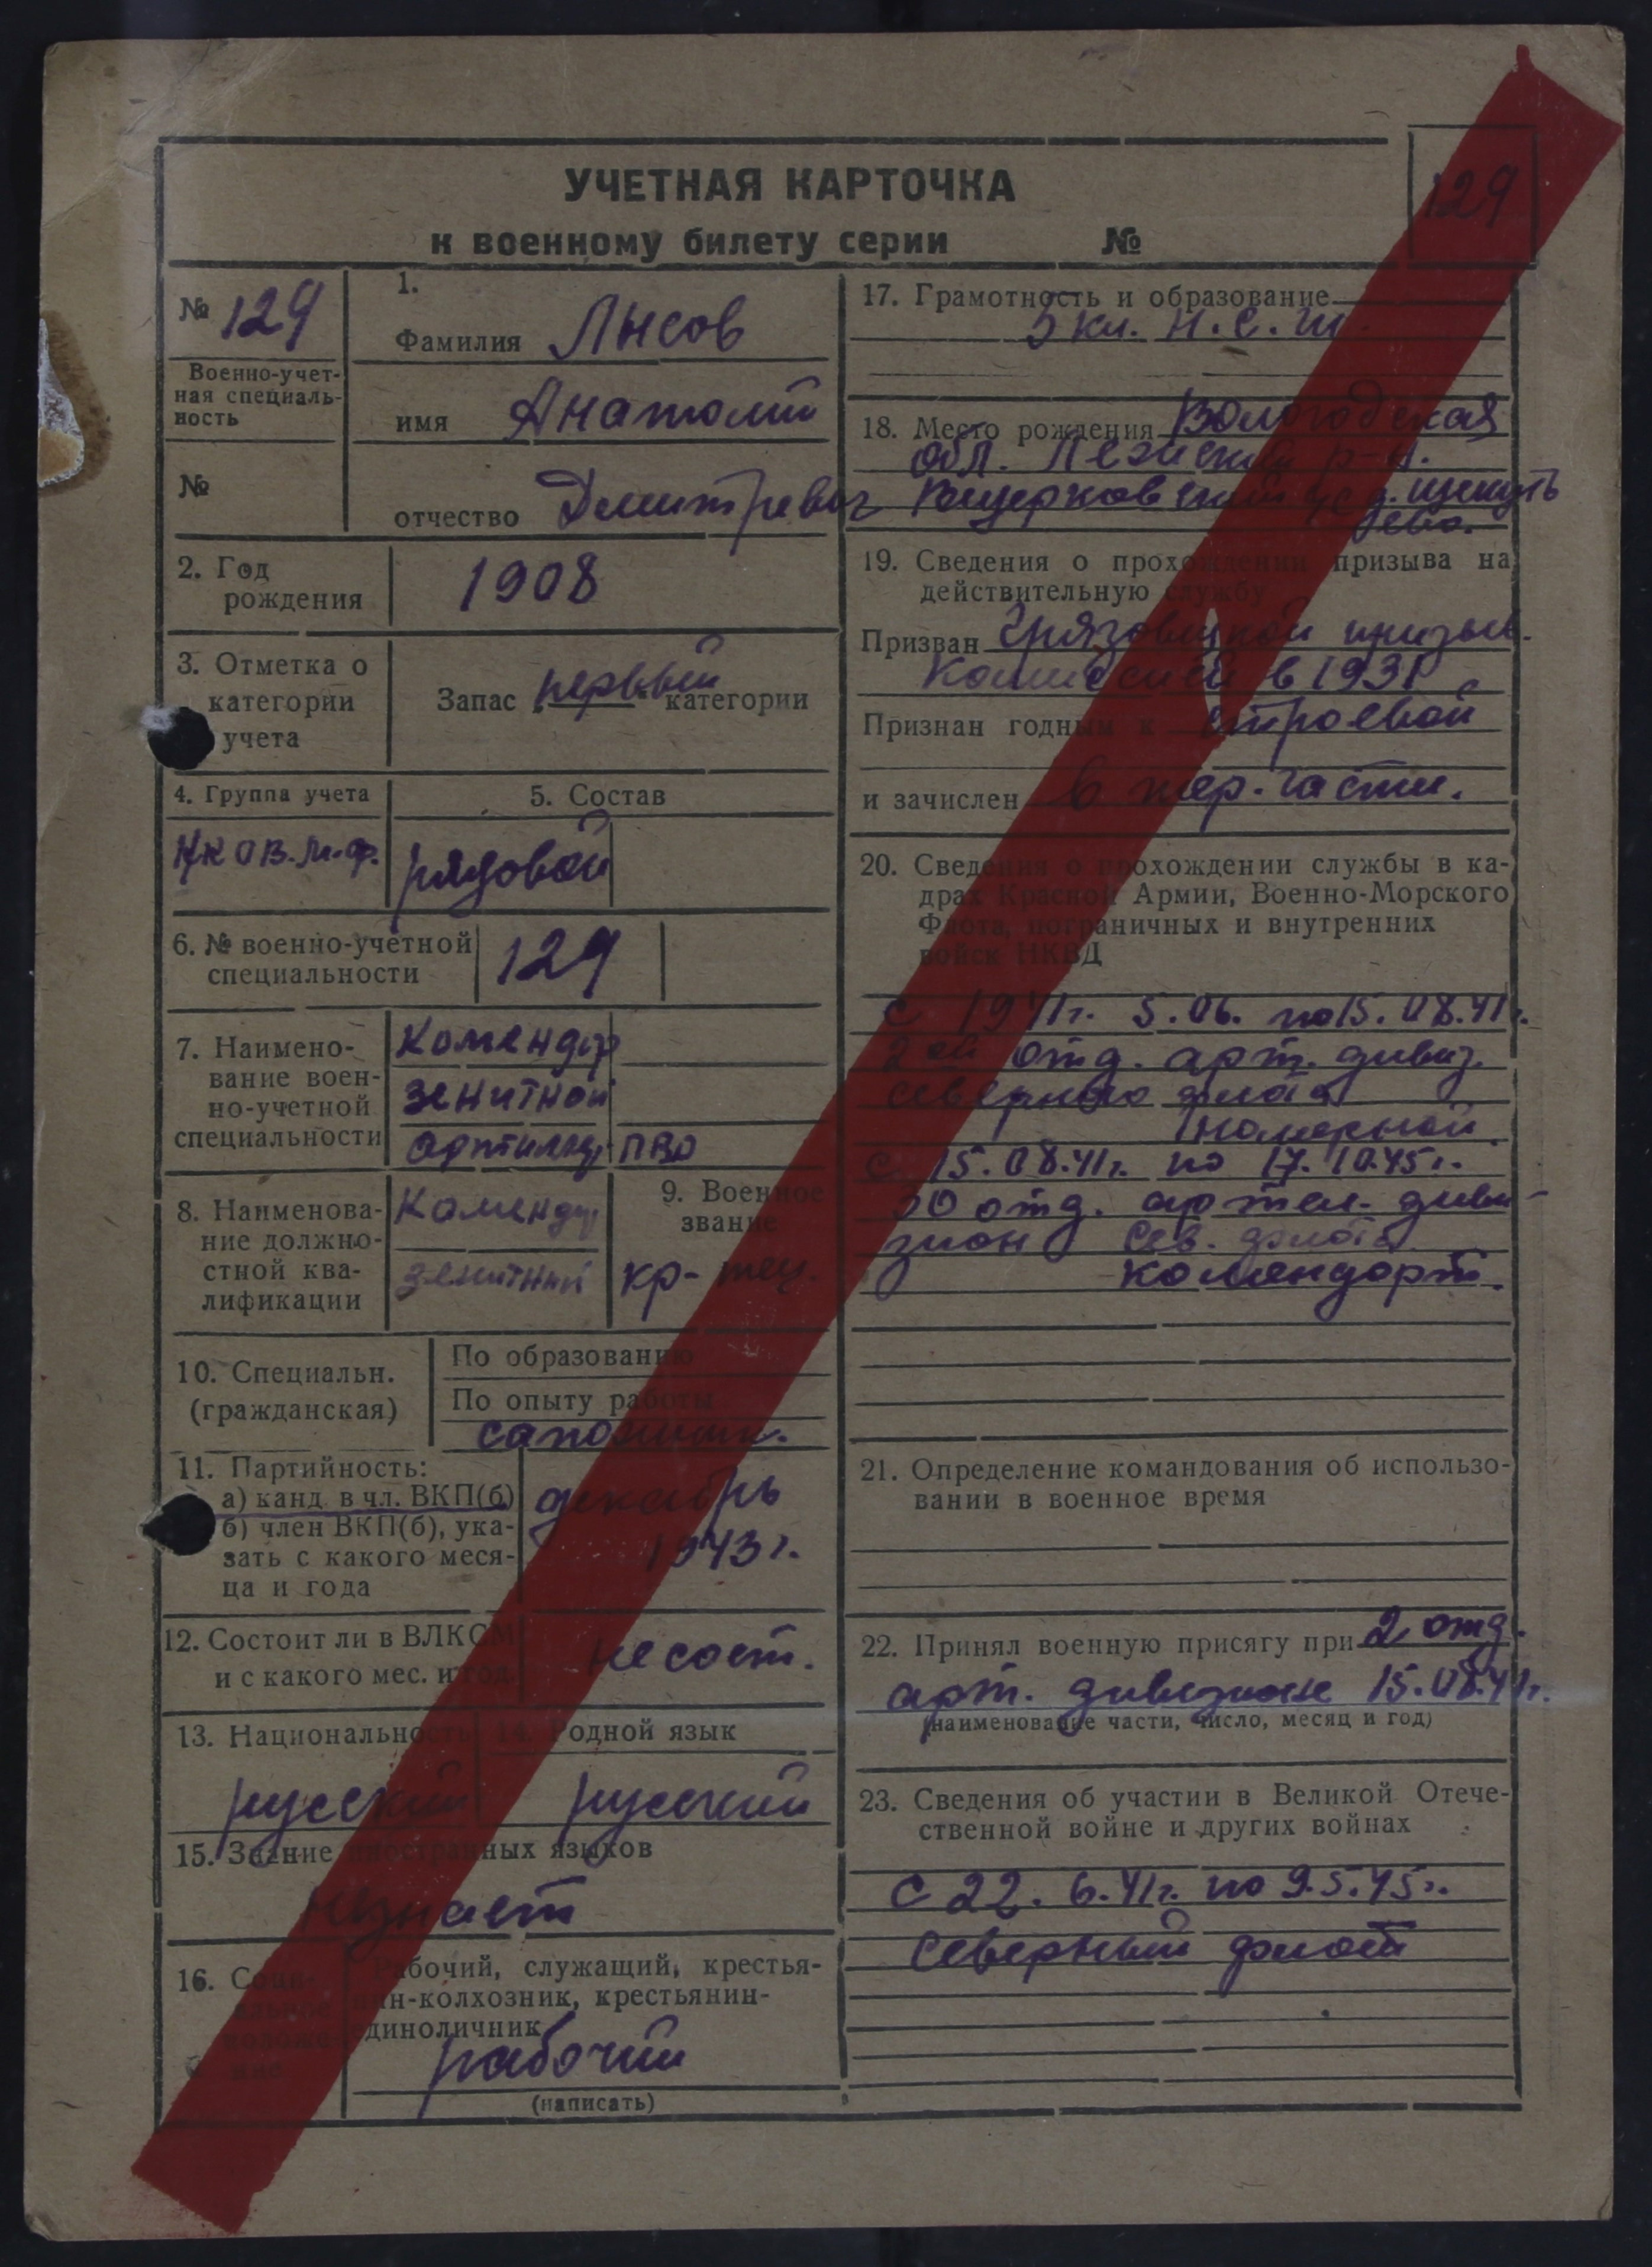 УЧЕТНАЯ КАРТОЧКА
к военному билету серии №
129
№ 129
Военно-учет-
ная специаль-
ность
№
1.
Фамилия Лысов
имя Анатолий
отчество Дмитревич
2. Год
рождения
1908
3. Отметка о
категории
учета
Запас первый категории
4. Группа учета
5. Состав
рядовой
6. № военно-учетной
специальности
129
7. Наимено-
вание воен-
но-учетной
специальности
Комендор
зенитной
ПВО
8. Наименова-
ние должно-
стной ква-
лификации
Комендор
зенитный
9. Военное
звание
кр-
10. Специальн.
(гражданская)
По образованию
По опыту работы
сапожник.
11. Партийность:
а) канд. в чл. ВКП(б)
б) член ВКП(б), ука-
зать с какого меся-
ца и года
декабрь
1943 г.
12. Состоит ли в ВЛКСМ
и с какого мес. и год.
не сост.
13. Национальность
русский
14. Родной язык
русский
15. Знание иностранных языков
незнает
16. Соци-
альное
положе-
ние
Рабочий, служащий, крестья-
нин-колхозник, крестьянин-
единоличник
рабочий
(написать)
17. Грамотность и образование
5 кл. н.с.ш.
18. Место рождения Вологодская
обл. Лежский р-н.
19. Сведения о прохождении призыва на
действительную службу
Призван Грязовецкой призыв.
Комиссией в 1931
Признан годным к строевой
и зачислен в тер. части.
20. Сведения о прохождении службы в ка-
драх Красной Армии, Военно-Морского
Флота, пограничных и внутренних
войск НКВД
С 1941г. 5.06. по 15.08.41г.
2 ой отд. арт. дивиз.
северного флота
С 15.08.41г. по 17.10.45г.
30 отд. артил. диви-
зион Сев. флота
комендор
21. Определение командования об использо-
вании в военное время
22. Принял военную присягу при 2 отд.
арт. дивизионе 15.08.41г.
(наименование части, число, месяц и год)
23. Сведения об участии в Великой Отече-
ственной войне и других войнах
С 22.6.41г. по 9.5.45г.
Северный флот